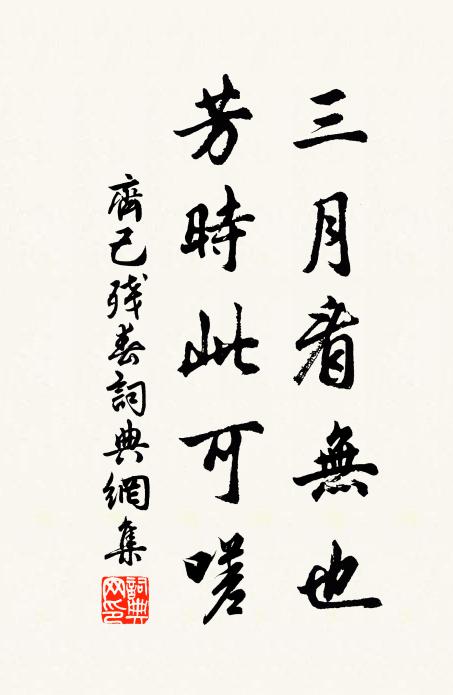 三月看無也
芳時此可嗟
齊己残春詞典網集
詞典网印